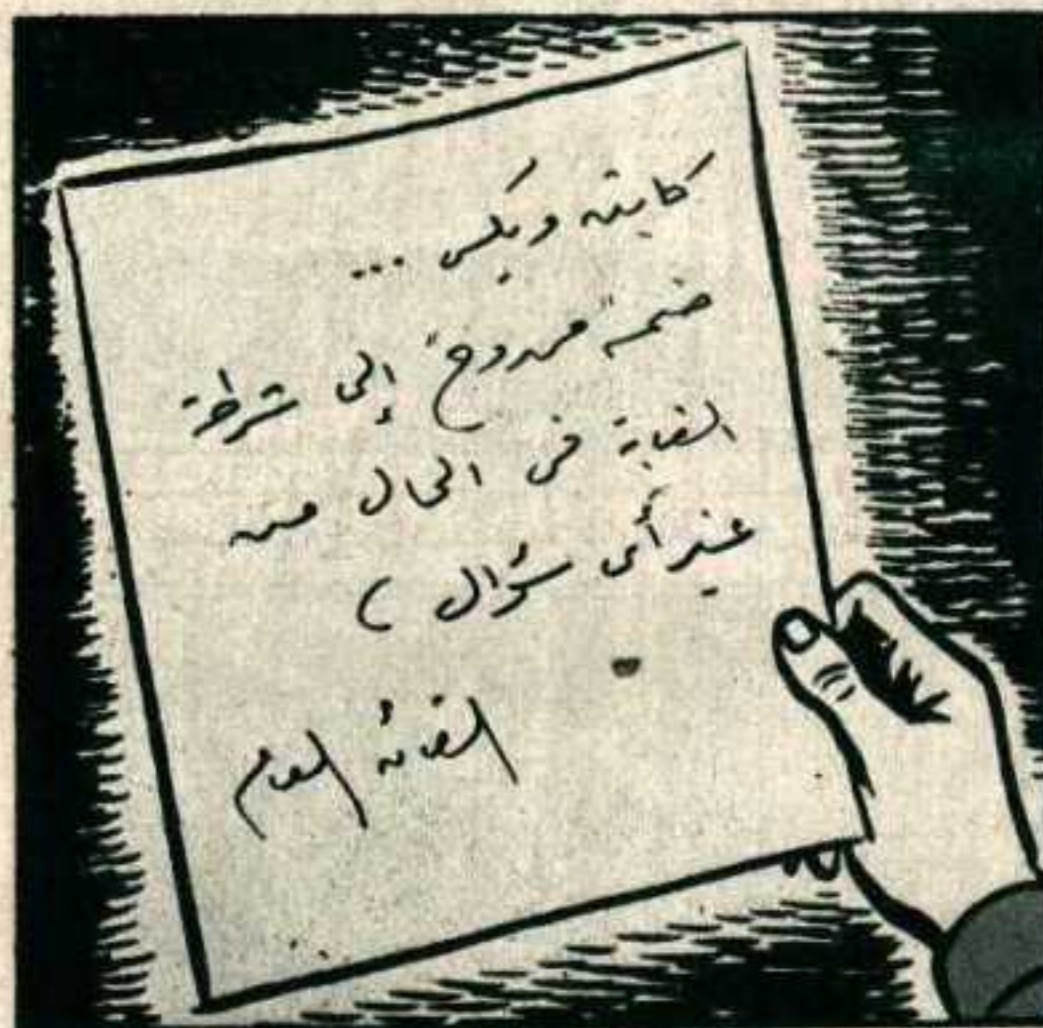 كابتن ويكس ...
ضم "ممدوح" إلى شرطة
الغابة فى الحال من
غير أى سؤال )
القائد العام